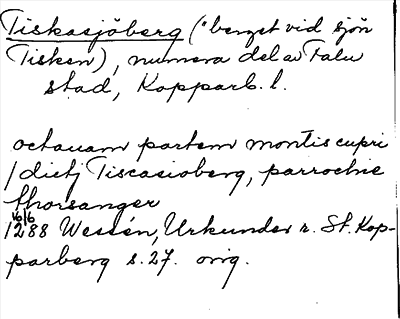 Tiskasjöberg ('berget vid sjön
Tisken), numera del av Falu
stad, Kopparb. l.
octauam partem montis cupri
/dicti Tiscasioberg, parrochie
thorsanger
16/6
1288 Wessén, Urkunder r. St. Kop-
parberg s. 27. orig.